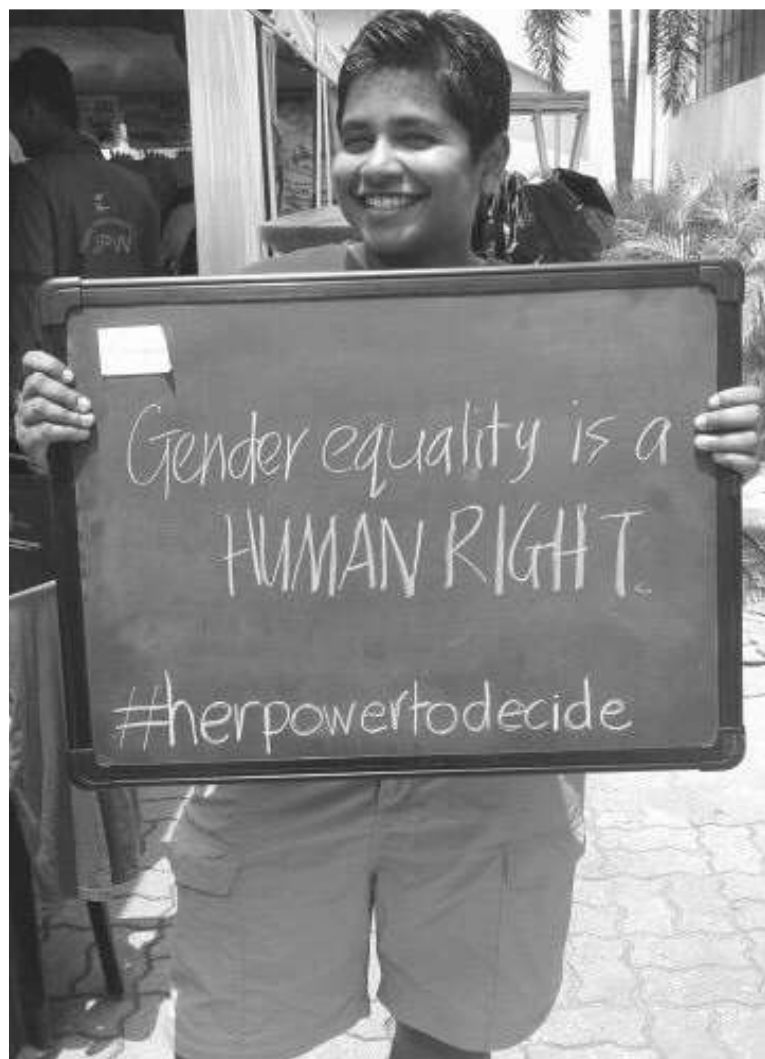 Gender equality is a
HUMAN RIGHT.
#herpowertodecide